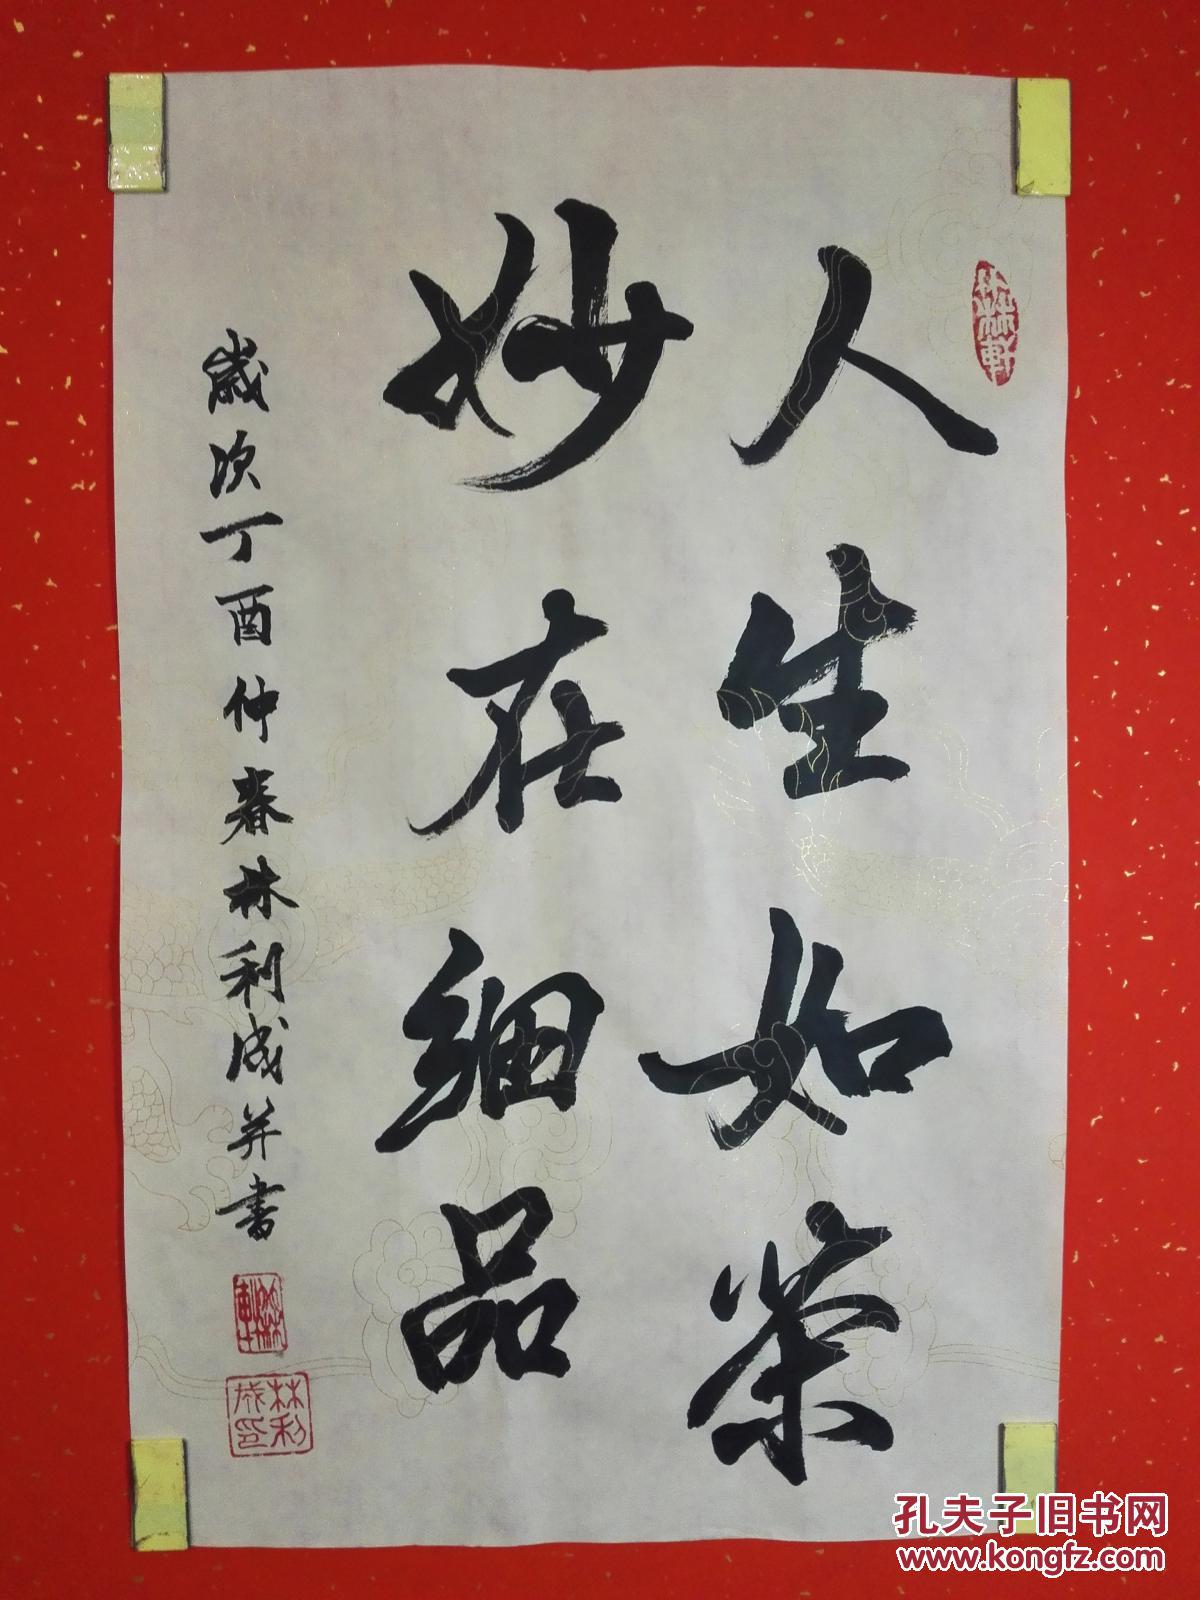 人生如茶
妙在细品
歲次丁酉仲春林利成并書
林利成印
孔夫子旧书网
www.kongfz.com